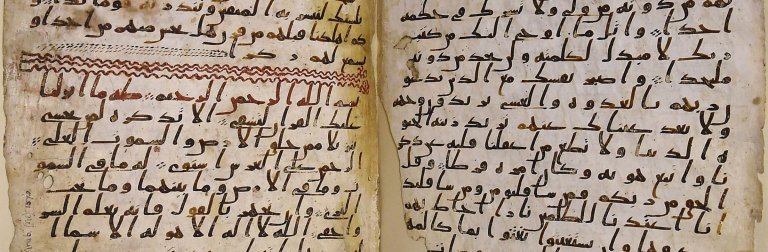 من دونه من ولي ولا يشرك في حكمه
احدا واتل ما اوحي اليك من كتب
ربك لا مبدل لكلمته ولن تجد من دونه
ملتحدا واصبر نفسك مع الذين يدعو
ن ربهم بالغدوه والعشي يريدون وجهه
ولا تعد عيناك عنهم تريد زينه الحيو
ه الدنيا ولا تطع من اغفلنا قلبه عن ذكر
نا واتبع هويه وكان امره فرطا وقل
الحق من ربكم فمن شا فليومن ومن شا فليكفر
انا اعتدنا للظلمين نارا احاط بهم
يستغيثوا يغاثوا بما كالمهل
بلسنك لتبشر به المتقين وتنذر به
كم اهلكنا قبلهم من قرن هل تحس منهم من احد او
تسمع لهم ركزا
بسم الله الرحمن الرحيم طه ما انزلنا
عليك القران لتشقى الا تذكره لمن يخشى
تنزيلا ممن خلق الارض والسموت العلى
الرحمن على العرش استوى له ما في السمو
ت وما في الارض وما بينهما وما تحت
الثرى وان تجهر بالقول فانه يعلم السر
واخفى الله لا اله الا هو له الاسما